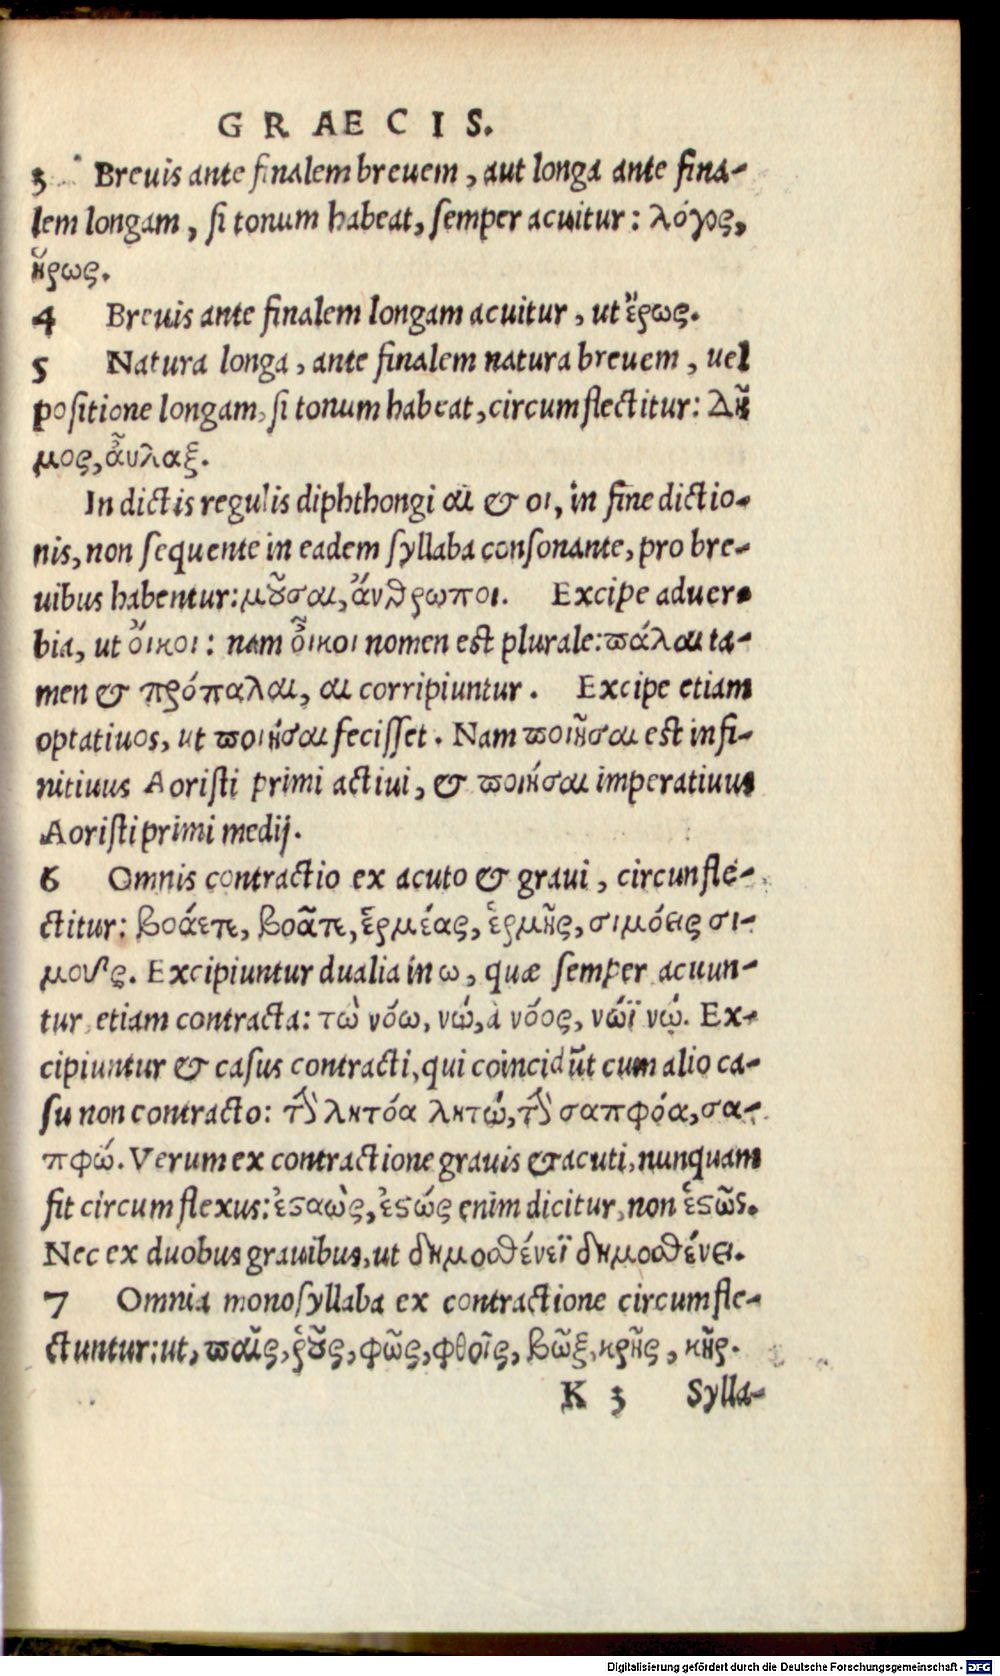 GRAECIS.
3 Breuis ante finalem breuem, aut longa ante fina-
lem longam, si tonum habeat, semper acuitur: λόγος,
ἥρως.
4 Breuis ante finalem longam acuitur, ut ἔρως.
5 Natura longa, ante finalem natura breuem, uel
positione longam, si tonum habeat, circumflectitur: Δῆ
μος, ἆυλαξ.
In dictis regulis diphthongi αι & οι, in fine dictio-
nis, non sequente in eadem syllaba consonante, pro bre-
uibus habentur: μοῦσαι, ἄνθρωποι. Excipe aduer-
bia, ut ὄικοι: nam ὦικοι nomen est plurale: πάλαι ta-
men & πρόπαλαι, αι corripiuntur. Excipe etiam
optatiuos, ut ποιήσαι fecisset. Nam ποιῆσαι est infi-
nitiuus Aoristi primi actiui, & ποιήσαι imperatiuus
Aoristi primi medij.
6 Omnis contractio ex acuto & graui, circunfle-
ctitur: βοάετε, βοᾶτε, ἑρμέας, ἑρμῆς, σιμόεις σι-
μοῦς. Excipiuntur dualia in ω, quæ semper acuun-
tur, etiam contracta: τὼ νόω, νώ, ἀ νόος, νώϊ νῴ. Ex-
cipiuntur & casus contracti, qui coincidūt cum alio ca-
su non contracto: τὴν λητόα λητώ, τὴν σαπφόα, σα-
πφώ. Verum ex contractione grauis & acuti, nunquam
fit circumflexus: ἑσαὼς, ἑσώς enim dicitur, non ἑσῶς.
Nec ex duobus grauibus, ut δημοσθένεϊ δημοσθένει.
7 Omnia monosyllaba ex contractione circumfle-
ctuntur: ut, παῖς, ῥοῦς, φῶς, φθοῖς, βῶξ, κρῆς, κῆρ.
K 3 Sylla-
Digitalisierung gefördert durch die Deutsche Forschungsgemeinschaft - DFG